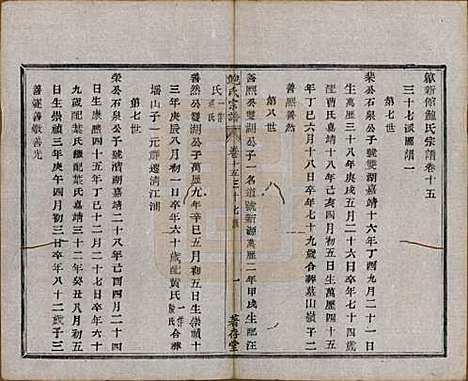 歙新館鮑氏宗譜卷十五
三十七派圖一
第七世
榮公石泉公子號雙湖嘉靖十六年丁酉九月二十一日
生萬曆三十八年庚戌五月二十一日卒年七十四
配曹氏嘉靖三十六年丁巳四月十八日生萬曆四十五
年丁巳六月十八日卒年七十九歲合葬墓山嶺子二
善熙善然
第八世
善熙公雙湖公子一名道號新湖萬曆二年甲戌生配汪
氏
善然公雙湖公子萬曆九年辛巳五月初五日生崇禎十
三年庚辰八月初一日卒年六十歲配黃氏合葬
塘山子一元祥遷清江浦
第七世
榮公石泉公子號清湖嘉靖二十八年己酉四月二十四
日生萬曆四十五年丁巳十二月二十七日卒年六十
九歲配葉氏嘉靖三十二年癸丑八月初五
日生崇禎三年庚午四月初三日卒年八十二歲子三
善運善微善光
鮑氏宗譜
卷十五三十七派
一
著存堂